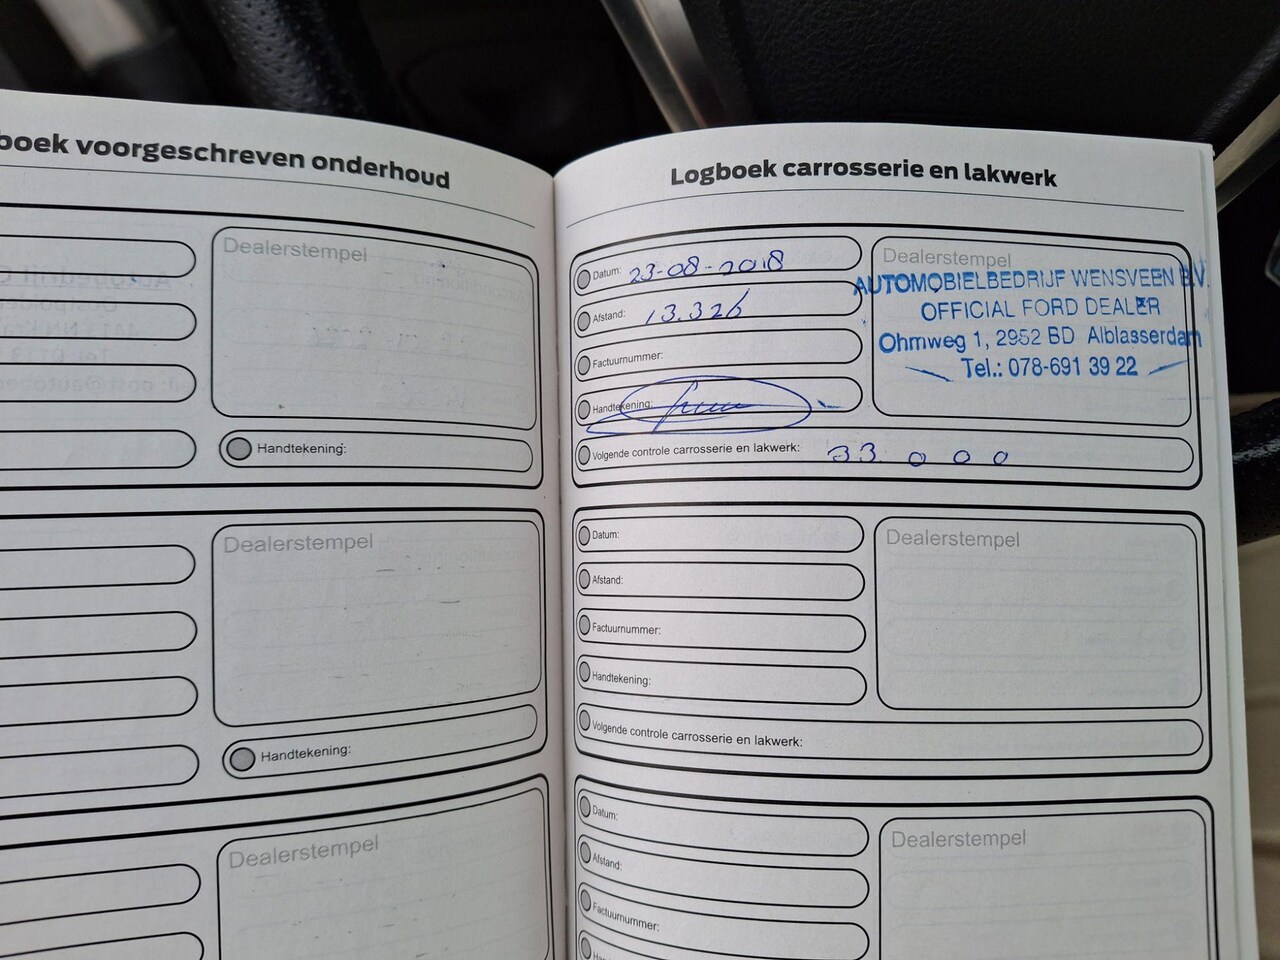 boek voorgeschreven onderhoud
Dealerstempel
Handtekening:
Dealerstempel
Handtekening:
Dealerstempel
Logboek carrosserie en lakwerk
Datum: 23-08-2018
Afstand: 13.326
Factuurnummer:
Handtekening:
Dealerstempel
AUTOMOBIELBEDRIJF WENSVEEN B.V.
OFFICIAL FORD DEALER
Ohmweg 1, 2952 BD Alblasserdam
Tel.: 078-691 39 22
Volgende controle carrosserie en lakwerk: 33.000
Datum:
Afstand:
Factuurnummer:
Handtekening:
Dealerstempel
Volgende controle carrosserie en lakwerk:
Datum:
Afstand:
Factuurnummer:
Han
Dealerstempel